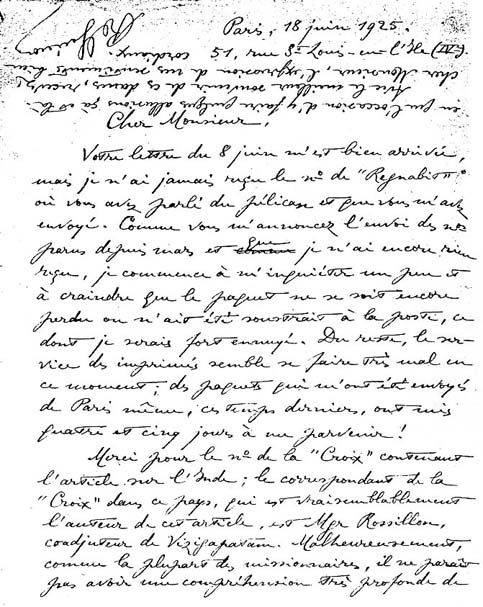 Paris, 18 juin 1925.
51, rue St Louis-en-l'Île (IVe).
Cher Monsieur,
Votre lettre du 8 juin m'est bien arrivée,
mais je n'ai jamais reçu le nº de "Regnabit"
où vous avez parlé du pélican et que vous m'avez
envoyé. Comme vous m'annoncez l'envoi des nos
parus depuis mars et que je n'ai encore rien
reçu, je commence à m'inquiéter un peu et
à craindre que le paquet ne se soit encore
perdu ou n'ait été soustrait à la poste, ce
dont je serais fort ennuyé. Du reste, le ser-
vice des imprimés semble se faire très mal en
ce moment ; des paquets qui m'ont été envoyés
de Paris même, ces temps derniers, ont mis
quatre et cinq jours à me parvenir !
Merci pour le nº de la "Croix" contenant
l'article sur l'Inde ; le correspondant de la
"Croix" dans ce pays, qui est vraisemblablement
l'auteur de cet article, est Mgr Rossillon,
coadjuteur de Vizigapatam. Malheureusement,
comme la plupart des missionnaires, il ne paraît
pas avoir une compréhension très profonde de
eu l'occasion d'y faire quelques allusions çà et là.
Avec le meilleur souvenir de ces dames, recevez,
cher Monsieur, l'expression de mes sentiments bien
cordiaux.